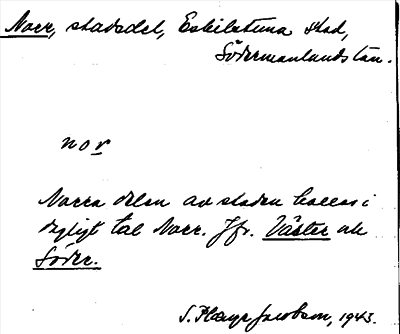 Norr, stadsdel, Eskilstuna stad,
Södermanlands län.
nor
Norra delen av staden kallas i
dagligt tal Norr. Jfr. Väster och
Söder.
S. Jacobson, 1943.